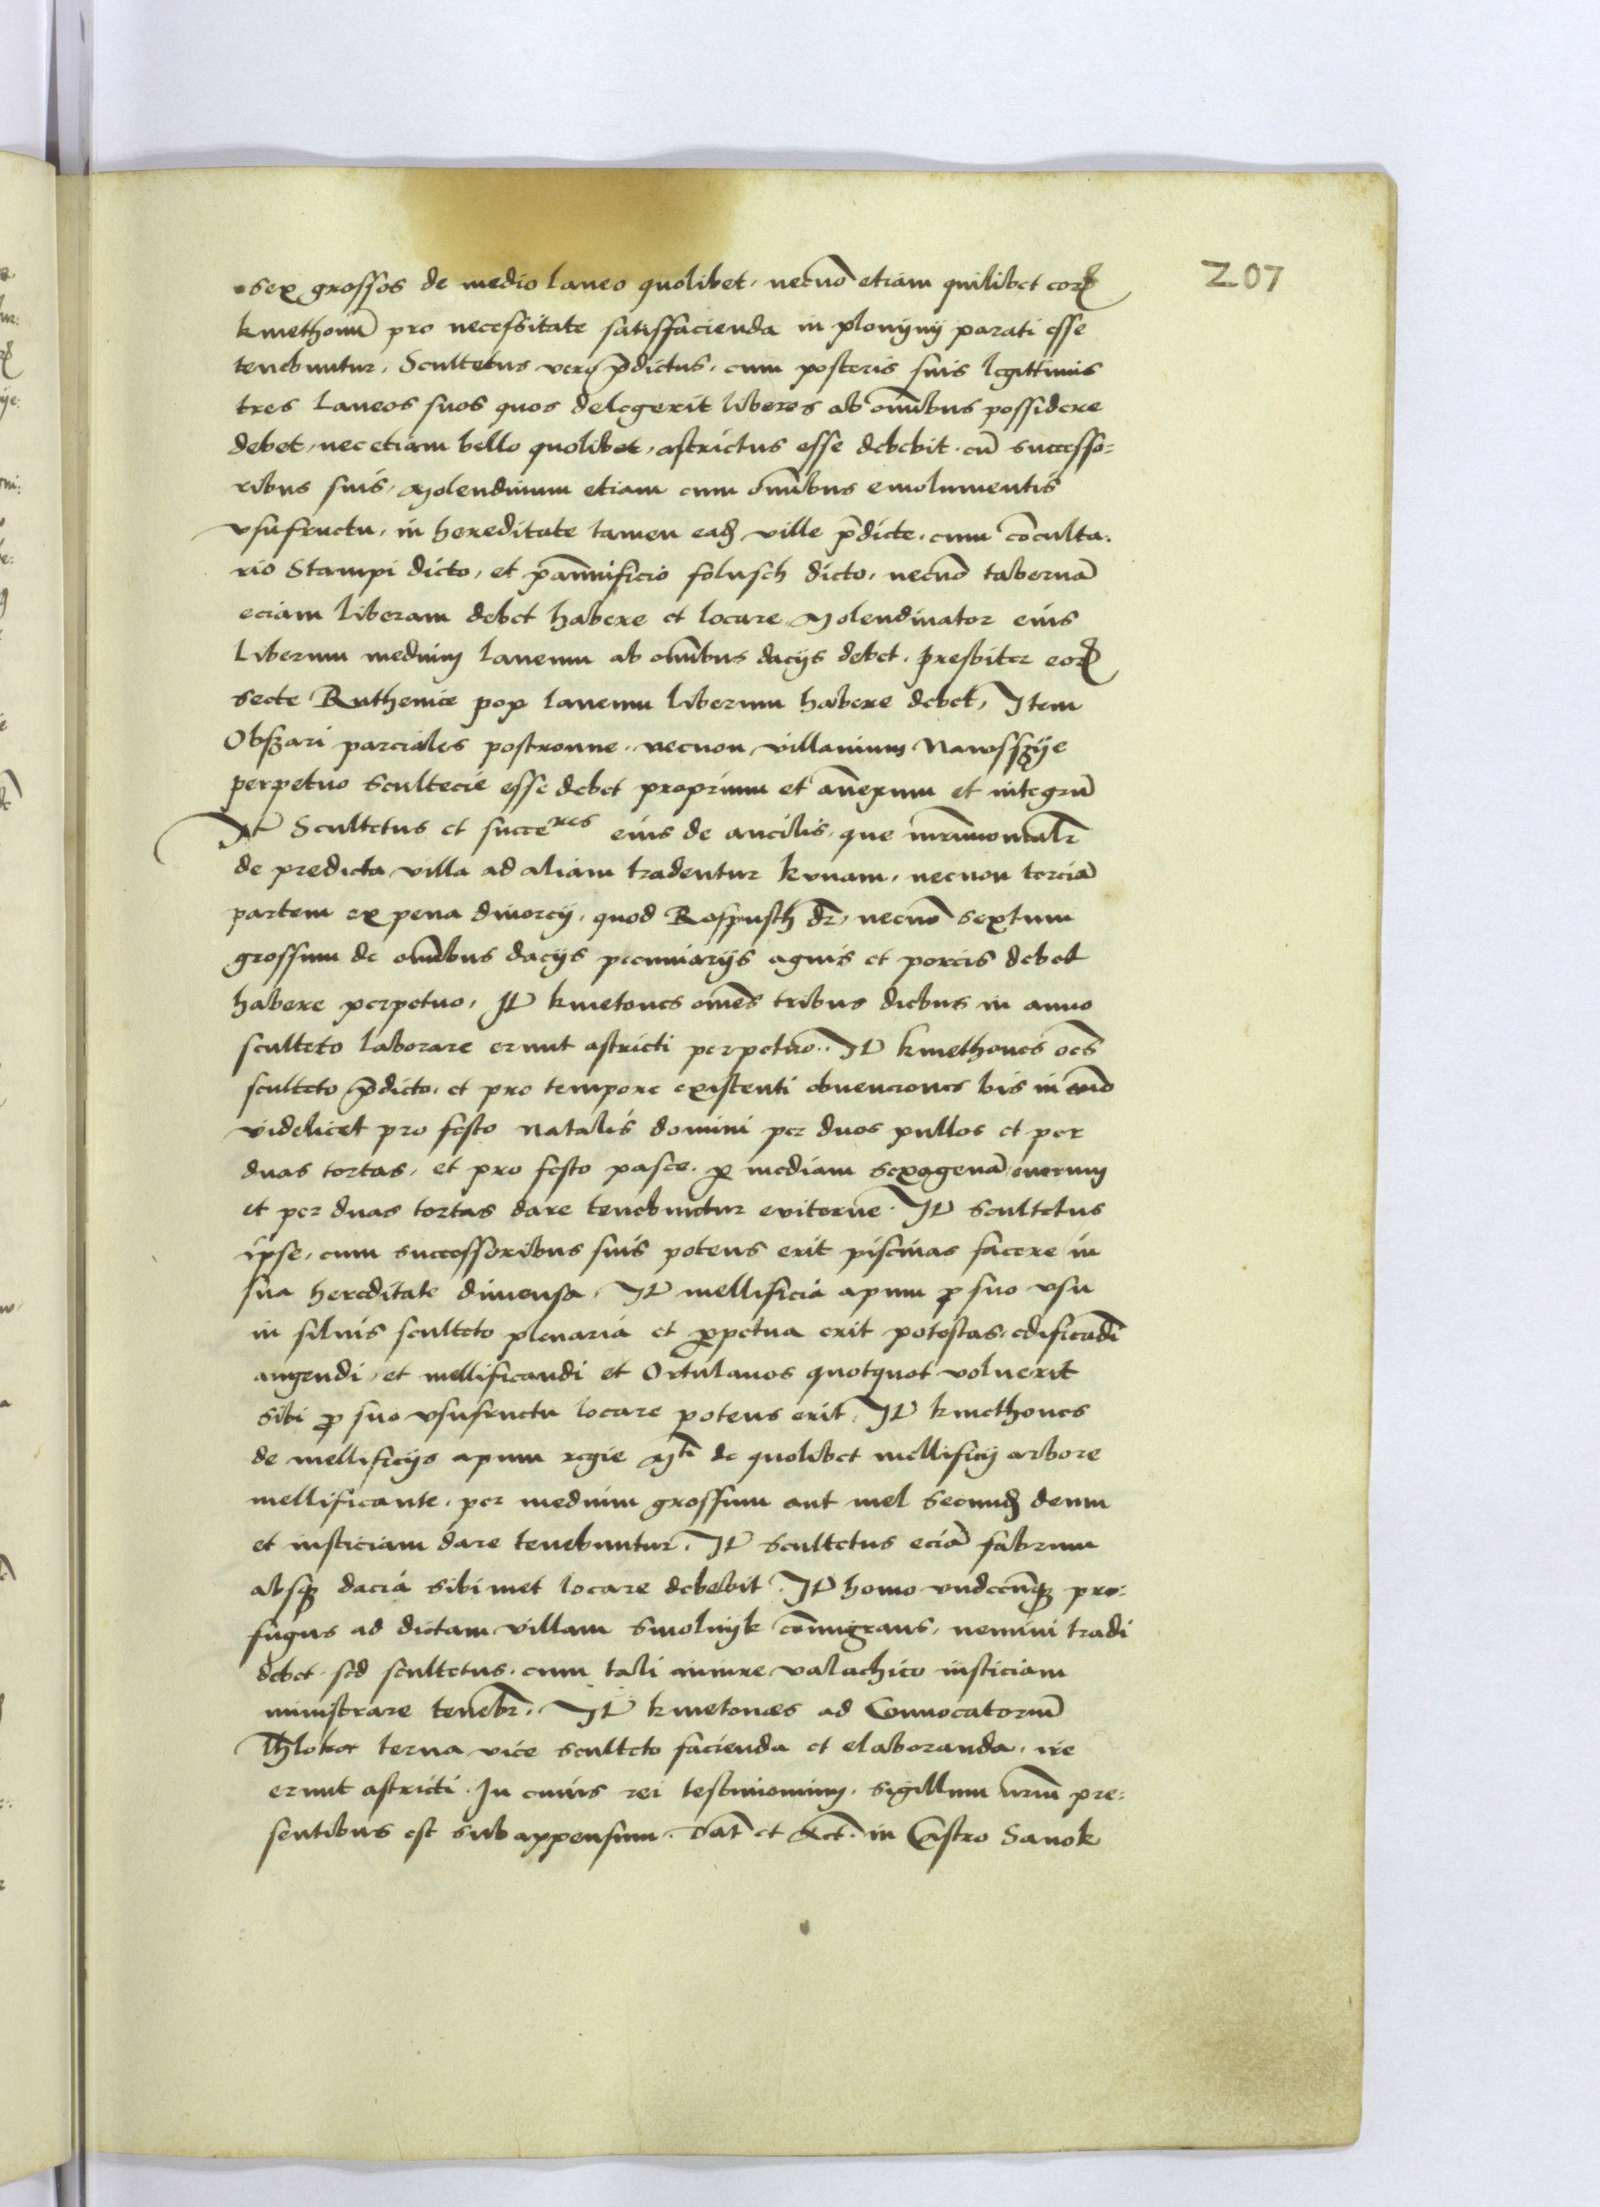 207
sex grossos de medio laneo quolibet, necnō etiam quilibet eorꝝ
kmethonū pro necessitate satisfacienda in plonyny parati esse
tenebuntur, Scultetus vero p̄dictus, cum posteris suis legittimis
tres laneos suos quos delegerit liberos ab om̄ibus possidere
debet, nec etiam bello quolibet, astrictus esse debebit. cū successo=
ribus suis, Molendinum etiam cum om̄ibus emolumentis
vsufructu, in hereditate tamen eadꝫ ville p̄dicte, cum cōculta-
rio Stampi dicto, et pānnificio folusch dicto, necnō tabernā
eciam liberam debet habere et locare, Molendinator eius
liberum medium laneum ab om̄ibus dacijs debet, presbiter eorꝝ
secte Ruthenice pop laneum liberum habere debet, Item
Obszari parciales postronne, necnon villanium Nawosszije
perpetuo scultecie esse debet proprium et ānexum et integrū
It̄ Scultetus et succeres eius de ancilis, que
de predicta villa ad aliam tradentur kunam, necnon terciā
partem ex pena divorcij, quod Rospusth dr̄, necnō sextum
grossum de om̄ibus dacijs pecuniarijs agnis et porcis debet
habere perpetuo, It̄ kmetones om̄es tribus diebus in anno
sculteto laborare erunt astricti perpetuo. It̄ kmethones oēs
sculteto p̄dicto, et pro tempore existenti obuenciones bis in
videlicet pro festo natalis domini per duos pullos et per
duas tortas, et pro festo pasce, ꝑ mediam sexagenā ovorum
et per duas tortas dare tenebuntur eviterne. It̄ scultetus
ipse, cum successoribus suis potens erit piscinas facere in
sua hereditate dimensa, It̄ mellificia apum ꝓ suo vsu
in siluis sculteto plenaria et ꝑpetua erit potestas, edificādi
augendi, et mellificandi et Ortulanos quotquot voluerit
sibi ꝓ suo vsufructu locare potens erit, It̄ kmethones
de mellificijs apum regie Mti de quolibet mellificij arbore
mellificante, per medium grossum aut mel secundꝫ deum
et iusticiam dare tenebuntur. It̄ scultetus eciā fabrum
absqꝫ dacia sibi met locare debebit. It̄ homo vndecūqꝫ pro-
fugus ad dictam villam Smolnijk cōmigrans, nemini tradi
debet, sed scultetus, cum tali in iure valachico iusticiam
ministrare tenebr̄. It̄ kmetones ad Conuocatorum̄
Thloka terna vice sculteto facienda et elaboranda, ire
erunt astricti. In cuius rei testimonium, sigillum nr̄um pre-
sentibus est subappensum. Dat̄ et Act̄. in Castro Sanok